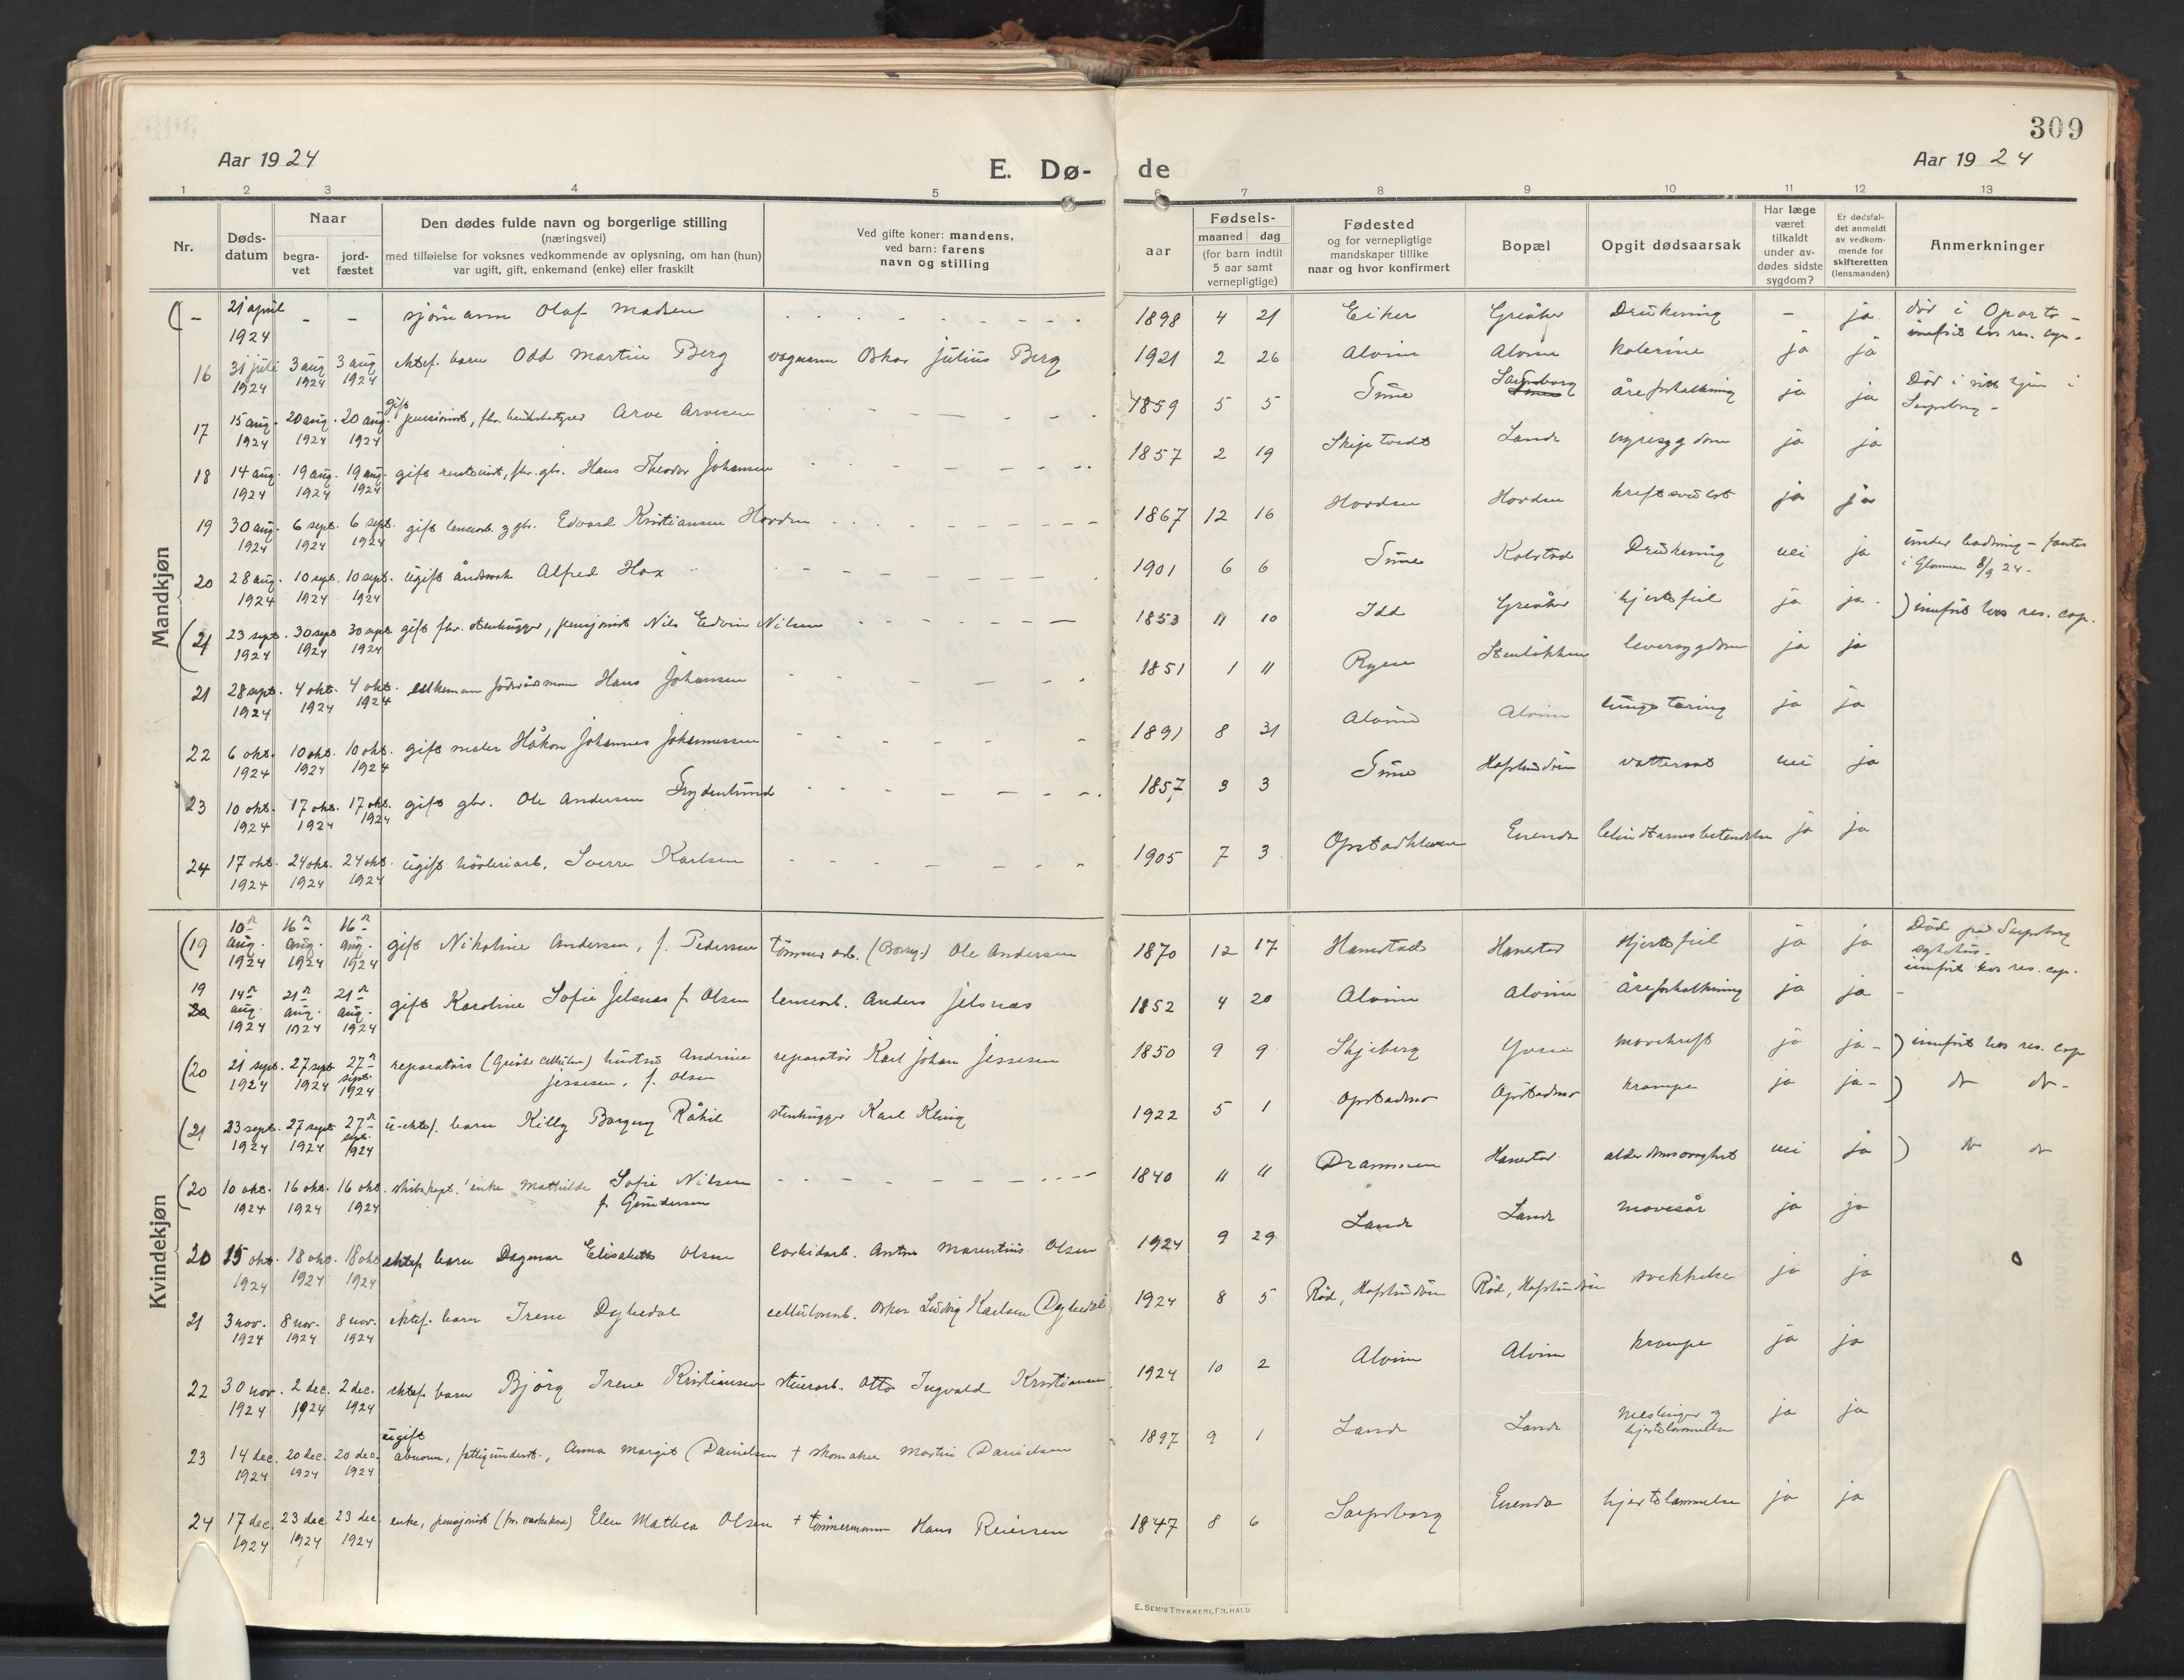 309
Aar 1924
E. Dø-
de
Aar 1924
1 2 3 4 5 6 7 8 9 10 11 12 13
Nr.
Døds-
datum
Naar
begra-
vet
jord-
fæstet
Den dødes fulde navn og borgerlige stilling
(næringsvei)
med tilføielse for voksnes vedkommende av oplysning, om han (hun)
var ugift, gift, enkemand (enke) eller fraskilt
Ved gifte koner: mandens,
ved barn: farens
navn og stilling
Fødsels-
aar
maaned dag
(for barn indtil
5 aar samt
vernepligtige)
Fødested
og for vernepligtige
mandskaper tillike
naar og hvor konfirmert
Bopæl
Opgit dødsaarsak
Har læge
været
tilkaldt
under av-
dødes sidste
sygdom?
Er dødsfal-
det anmeldt
av vedkom-
mende for
skifteretten
(lensmanden)
Anmerkninger
Mandkjøn
( - 21 april 1924 - - sjømann Olaf Madsen 1898 4 21 Eiker Greåker Drukning - ja død i Oporto - innført hos res. cap.
16 31 juli 1924 3 aug 1924 3 aug 1924 ektef. barn Odd Martin Berg vognmann Oskar Julius Berg 1921 2 26 Alvim Alvim kolerine ja ja
17 15 aug. 1924 20 aug. 1924 20 aug. 1924 gift pensionist, fhv. Arve Arvesen 1859 5 5 Tune Sarpsborg åreforkalkning ja ja Død i sitt hjem i Sarpsborg -
18 14 aug. 1924 19 aug. 1924 19 aug. 1924 gift rentenist, fhv. gbr. Hans Theodor Johansen 1857 2 19 Skiptvedt Lande nyresygdom ja ja
19 30 aug. 1924 6 sept. 1924 6 sept. 1924 gift lensearb. og gbr. Edvard Kristiansen Hovden 1867 12 16 Hovden Hovden kreftsvulst ja ja
20 28 aug. 1924 10 sept. 1924 10 sept. 1924 ugift åndssvak Alfred Hox 1901 6 6 Tune Kolstad Drukning nei ja under badning - funnet i Glommen 8/9 24 -
( 21 23 sept. 1924 30 sept 1924 30 sept 1924 gift fhv. stenhugger, pensjonist Nils Edvin Nilsen 1853 11 10 Idd Greåker hjertefeil ja ja. ) innført hos res. cap.
21 28 sept. 1924 4 okt. 1924 4 okt. 1924 enkemann føderådsmann Hans Johansen 1851 1 11 Rygge Stenløkken leversygdom ja ja
22 6 okt. 1924 10 okt. 1924 10 okt. 1924 gift maler Håkon Johannes Johannessen 1891 8 31 Alvim Alvim lungetæring ja ja
23 10 okt. 1924 17 okt. 1924 17 okt. 1924 gift gbr. Ole Andersen Frydenlund 1857 9 3 Tune Hafslundsøen vattersot nei ja
24 17 okt. 1924 24 okt. 1924 24 okt. 1924 ugift høvleriarb. Sverre Karlsen 1905 7 3 Enenda blindtarmsbetendelse ja ja
Kvindekjøn
( 19 10 aug. 1924 16 aug. 1924 16 aug. 1924 gift Nikoline Andersen, f. Pedersen tømmerarb. (Borreg.) Ole Andersen 1870 12 17 Hanestad Hanestad Hjertefeil ja ja Død på Sarpsborg sykehus - innført hos res. cap.
19 20 14 aug. 1924 21 aug. 1924 21 aug. 1924 gift Karoline Sofie Jelsnæs f. Olsen lensearb. Anders Jelsnæs 1852 4 20 Alvim Alvim Åreforkalkning ja ja -
( 20 21 sept. 1924 27 sept 1924 27 sept. 1924 reparatørs (Greåker cellulose) hustru Andrine Jessesen, f. Olsen reparatør Karl Johan Jessesen 1850 9 9 Skjeberg Yven mavekreft ja ja - ) innført hos res. cap
( 21 23 sept. 1924 27 sept 1924 27 sept. 1924 u-ektef. barn Killy Borgny Råkil stenhugger Karl Kling 1922 5 1 Opstadmo Opstadmo krampe ja ja - ) do do -
( 20 10 okt. 1924 16 okt. 1924 16 okt. 1924 skibskapt. enke Mathilde Sofie Nilsen f. Gundersen 1840 11 11 Drammen Hanestad alderdomssvaghet nei ja ) do do
20 15 okt. 1924 18 okt. 1924 18 okt 1924 ektef. barn Dagmar Elisabeth Olsen carbidarb. Anton Marentius Olsen 1924 9 29 Lande Lande mavesår ja ja
21 3 nov. 1924 8 nov. 1924 8 nov. 1924 ektef. barn Irene Dybedal cellulosearb. Oskar Ludvig Karlsen Dybedal 1924 8 5 Rød, Hafslundsøen Rød, Hafslundsøen svekkelse ja ja
22 30 nov. 1924 2 dec. 1924 2 dec. 1924 ektef. barn Bjørg Irene Kristiansen stuerarb. Otto Ingvald Kristiansen 1924 10 2 Alvim Alvim krampe ja ja
23 14 dec. 1924 20 dec. 1924 20 dec. 1924 ugift abnorm, fattigunderst., Anna Margit Danielsen + skomaker Martin Danielsen 1897 9 1 Lande Lande Meslinger og hjertelammelse ja ja
24 17 dec. 1924 23 dec 1924 23 dec. 1924 enke, pensjonist (fhv. vaskekone) Elen Mathea Olsen + tømmermann Hans Reiersen 1847 8 6 Sarpsborg Enenda hjertelammelse ja ja
E. SEM'S TRYKKERI, FR.HALD